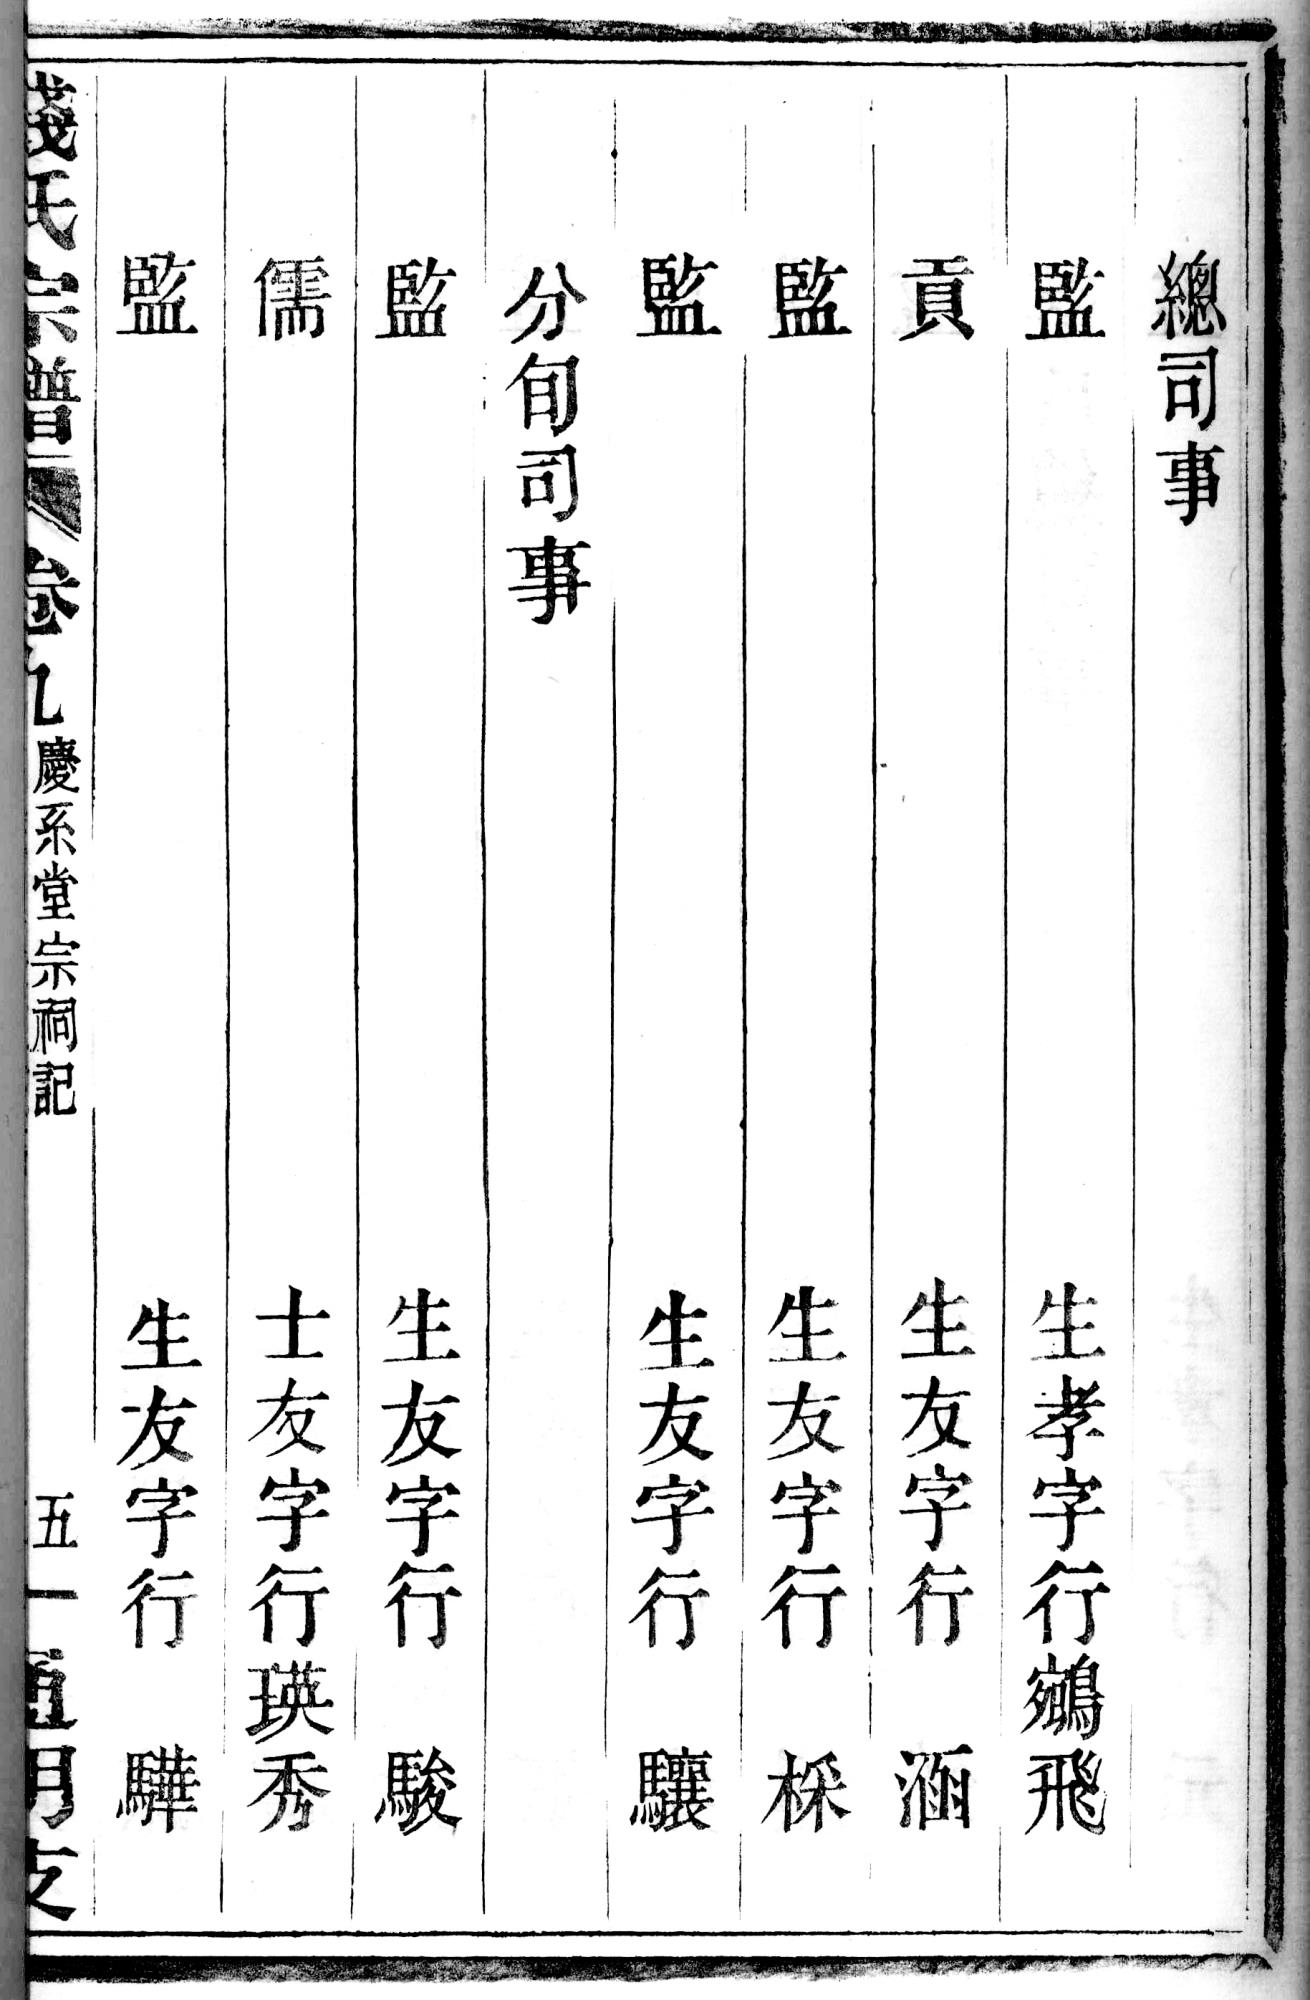 總司事
監生孝字行鵷飛
貢生友字行涵
監生友字行棌
監生友字行驤
分旬司事
監生友字行駿
儒士友字行瑛秀
監生友字行驊
錢氏宗譜 卷九 慶系堂宗祠記 五一 通明支